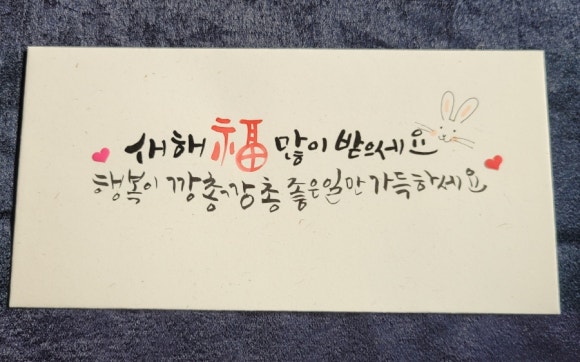 새해 福 많이 받으세요
행복이 깡총깡총 좋은일만 가득하세요